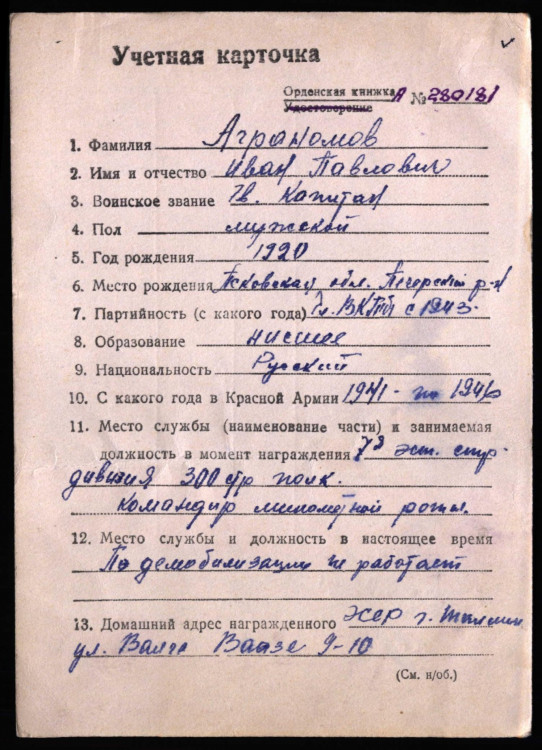 Учетная карточка
Орденская книжка А № 280181
Удостоверение
1. Фамилия Аграномов
2. Имя и отчество Иван Павлович
3. Воинское звание Гв. Капитан
4. Пол мужской
5. Год рождения 1920
6. Место рождения Псковская обл. Печорский р-н
7. Партийность (с какого года) Чл. ВКПб с 1943.
8. Образование низшее
9. Национальность Русский
10. С какого года в Красной Армии 1941 - по 1946
11. Место службы (наименование части) и занимаемая
должность в момент награждения 7я эст. стр-
дивизия 300 стр полк.
командир минометной роты.
12. Место службы и должность в настоящее время
По демобилизации не работает
13. Домашний адрес награжденного Эсср г. Таллин
ул. Вазе 9-10
(См. н/об.)